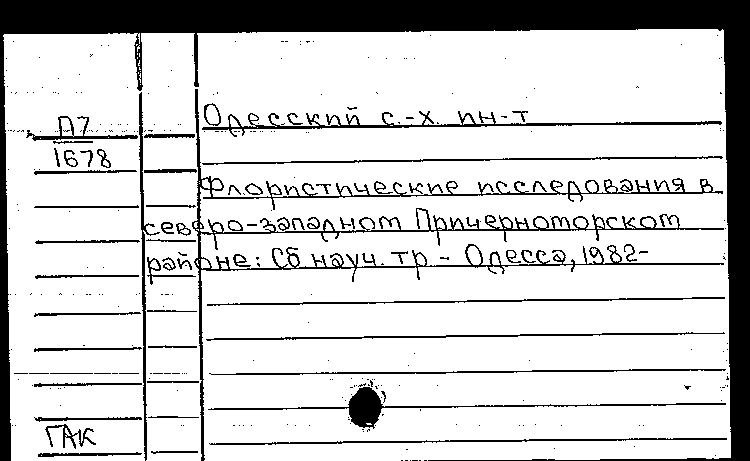 Одесский с.-х. ин-т
П7
1678
Флористические исследования в
северо-западном Причерноморском
районе: Сб науч. тр - Одесса, 1982-
ГАК